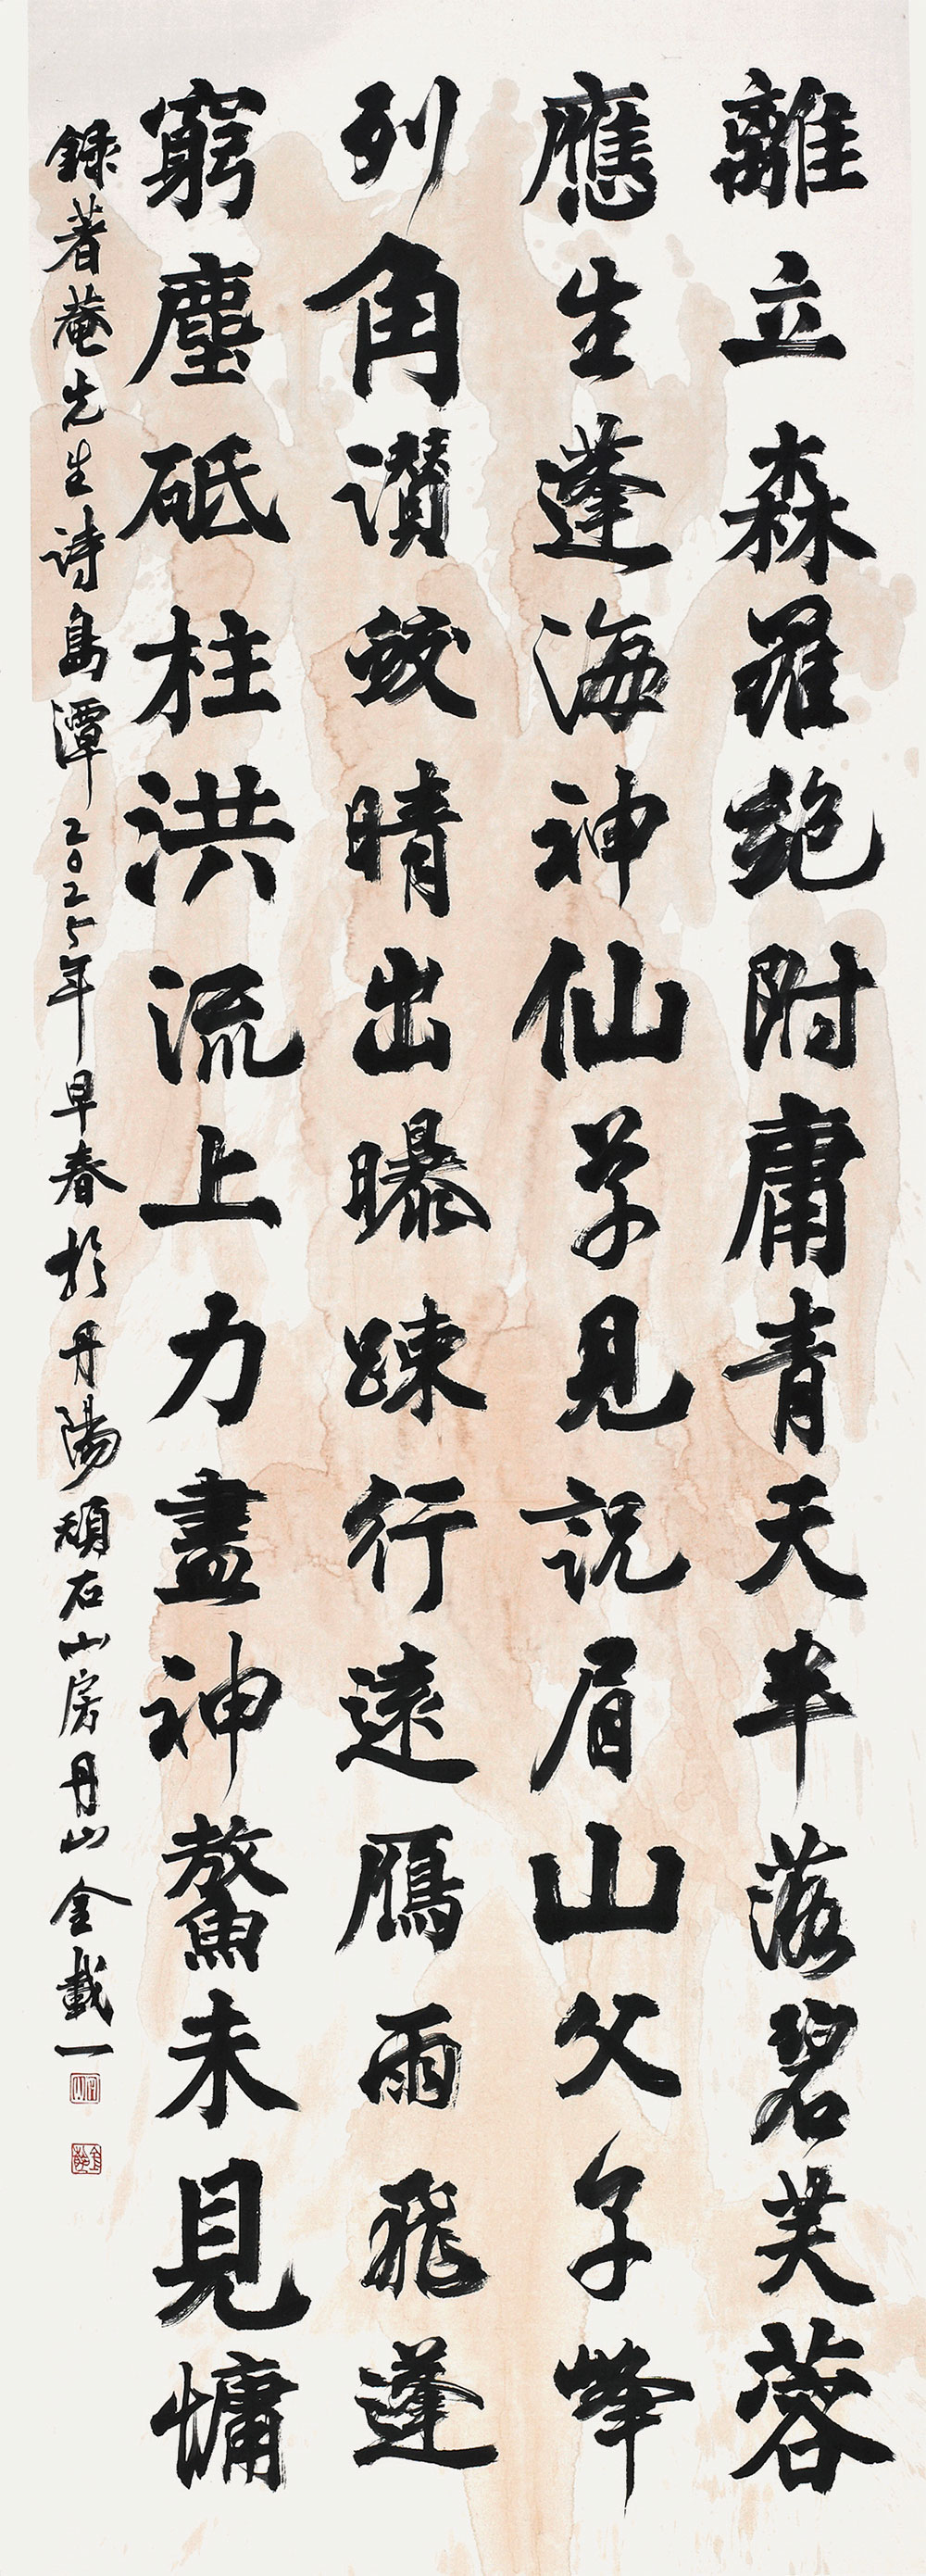 離立森羅絶附庸青天半落碧芙蓉
應生蓬海神仙学見説眉山父子峰
列角濳蛟晴出曝踈行遠鴈雨飛蓬
窮塵砥柱洪流上力盡神鰲未見慵
録著菴先生詩島潭2025年早春於丹陽頑石山房丹山金載一